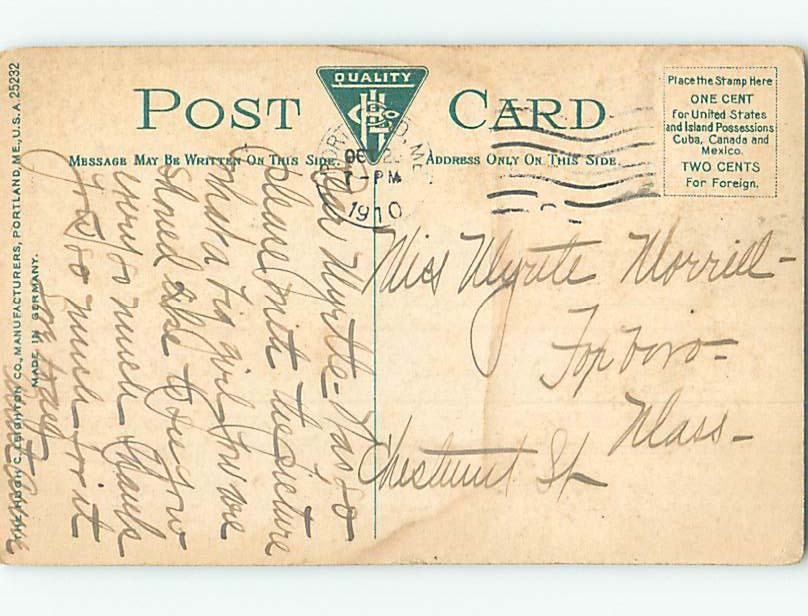 THE HUGH C. LEIGHTON CO., MANUFACTURERS, PORTLAND, ME., U.S.A. 25232
MADE IN GERMANY.
POST CARD
QUALITY
MESSAGE MAY BE WRITTEN ON THIS SIDE.
ADDRESS ONLY ON THIS SIDE
Place the Stamp Here
ONE CENT
for United States
and Island Possessions
Cuba, Canada and
Mexico.
TWO CENTS
For Foreign.
PORTLAND, ME.
OCT
1-PM
1910
Dear Myrtle- I was so
please with the picture
what a big girl you are
should like to see you
ever so much Thank
you so much for it
Miss Myrtle Morrill-
Foxboro-
Mass-
Chestnut St